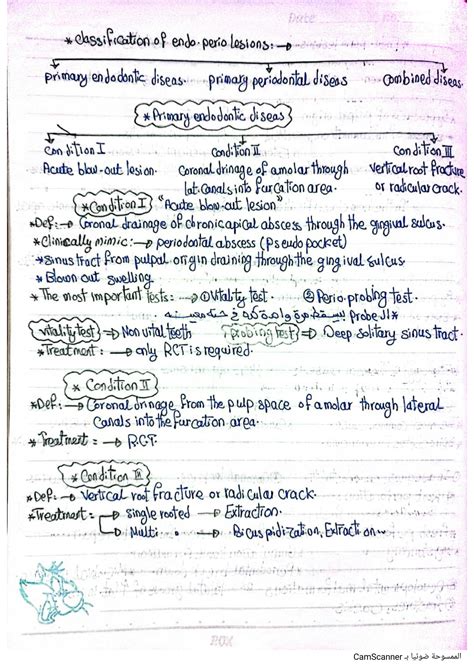 Date
* classification of endo. perio lesions: →
primary endodontic diseas. primary periodontal diseas combined diseas.
* Primary endodontic diseas
condition I condition II condition III
Acute blow-out lesion. coronal drinage of a molar through Vertical root fracture
lat. canals into furcation area. or radicular crack.
* Condition I "Acute blow-out lesion"
* Def: → Coronal drainage of chronic apical abscess through the gingival sulcus.
* Clinically mimic: → periodontal abscess (Pseudo pocket)
* sinus tract from pulpal origin draining through the gingival sulcus
* Blown out swelling
* The most important tests: → ① Vitality test. ② Perio. probing test.
* الـ Probe
Vitality test ⇒ Non vital teeth Probing test ⇒ Deep solitary sinus tract.
* Treatment: → only RCT is required.
* Condition II
* Def: → Coronal drinage from the pulp space of a molar through lateral
Canals into the furcation area.
* Treatment: → RCT.
* Condition III
* Def: → Vertical root fracture or radicular crack.
* Treatment: → single rooted → Extraction.
→ Multi " → Bicuspidization, Extraction
الممسوحة ضوئيا بـ CamScanner